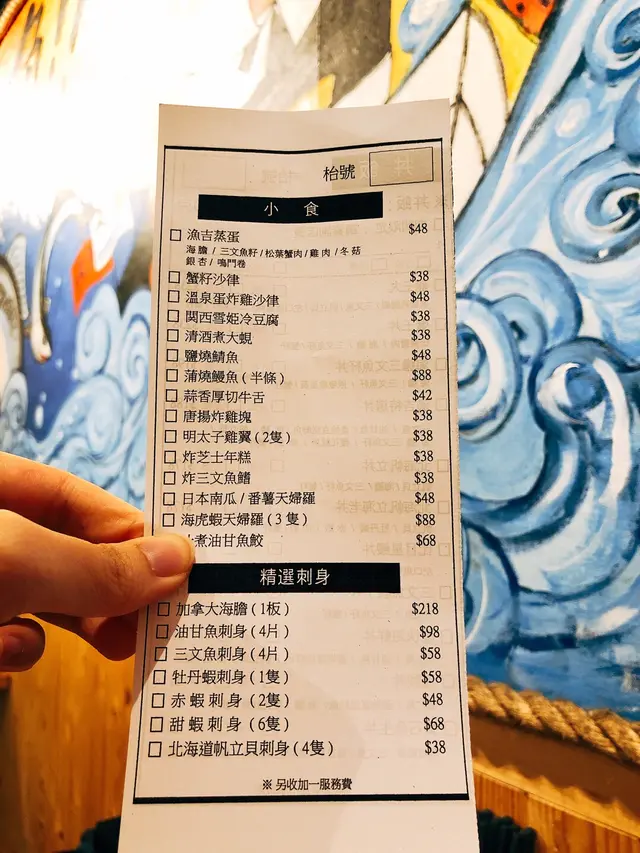 枱號
小食
漁吉蒸蛋 $48
海膽 / 三文魚籽 / 松葉蟹肉 / 雞肉 / 冬菇
銀杏 / 鳴門卷
蟹籽沙律 $38
溫泉蛋炸雞沙律 $48
関西雪姫冷豆腐 $38
清酒煮大蜆 $38
鹽燒鯖魚 $48
蒲燒鰻魚 (半條) $88
蒜香厚切牛舌 $42
唐揚炸雞塊 $38
明太子雞翼 (2隻) $38
炸芝士年糕 $38
炸三文魚鰭 $38
日本南瓜 / 番薯天婦羅 $48
海虎蝦天婦羅 (3隻) $88
煮油甘魚鮫 $68
精選刺身
加拿大海膽 (1板) $218
油甘魚刺身 (4片) $98
三文魚刺身 (4片) $58
牡丹蝦刺身 (1隻) $58
赤蝦刺身 (2隻) $48
甜蝦刺身 (6隻) $68
北海道帆立貝刺身 (4隻) $38
※ 另收加一服務費